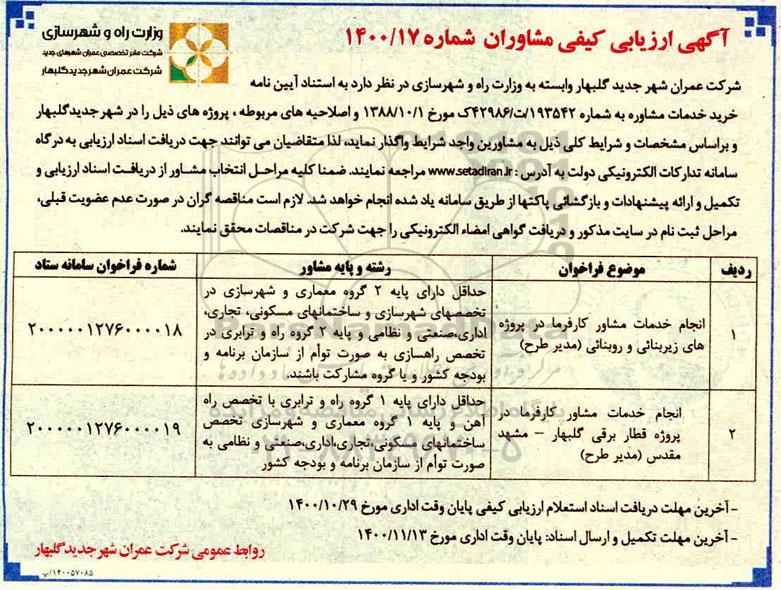 آگهی ارزیابی کیفی مشاوران شماره ۱۴۰۰/۱۷
وزارت راه و شهرسازی
شرکت مادر تخصصی عمران شهرهای جدید
شرکت عمران شهر جدید گلبهار
شرکت عمران شهر جدید گلبهار وابسته به وزارت راه و شهرسازی در نظر دارد به استناد آیین نامه
خرید خدمات مشاوره به شماره ۱۹۳۵۴۲/ت/۴۲۹۸۶ک مورخ ۱۳۸۸/۱۰/۱ و اصلاحیه های مربوطه ، پروژه های ذیل را در شهر جدید گلبهار
و براساس مشخصات و شرایط کلی ذیل به مشاورین واجد شرایط واگذار نماید، لذا متقاضیان می توانند جهت دریافت اسناد ارزیابی به درگاه
سامانه تدارکات الکترونیکی دولت به آدرس : www.setadiran.ir مراجعه نمایند. ضمنا کلیه مراحل انتخاب مشاور از دریافت اسناد ارزیابی و
تکمیل و ارائه پیشنهادات و بازگشائی پاکتها از طریق سامانه یاد شده انجام خواهد شد. لازم است مناقصه گران در صورت عدم عضویت قبلی،
مراحل ثبت نام در سایت مذکور و دریافت گواهی امضاء الکترونیکی را جهت شرکت در مناقصات محقق نمایند.
ردیف موضوع فراخوان رشته و پایه مشاور شماره فراخوان سامانه ستاد
۱
انجام خدمات مشاور کارفرما در پروژه
های زیربنائی و روبنائی (مدیر طرح)
حداقل دارای پایه ۲ گروه معماری و شهرسازی در
تخصصهای شهرسازی و ساختمانهای مسکونی، تجاری،
اداری،صنعتی و نظامی و پایه ۲ گروه راه و ترابری در
تخصص راهسازی به صورت توأم از سازمان برنامه و
بودجه کشور و یا گروه مشارکت باشند.
۲۰۰۰۰۰۱۲۷۶۰۰۰۰۱۸
۲
انجام خدمات مشاور کارفرما در
پروژه قطار برقی گلبهار – مشهد
مقدس (مدیر طرح)
حداقل دارای پایه ۱ گروه راه و ترابری با تخصص راه
آهن و پایه ۱ گروه معماری و شهرسازی تخصص
ساختمانهای مسکونی،تجاری،اداری،صنعتی و نظامی به
صورت توأم از سازمان برنامه و بودجه کشور
۲۰۰۰۰۰۱۲۷۶۰۰۰۰۱۹
- آخرین مهلت دریافت اسناد استعلام ارزیابی کیفی پایان وقت اداری مورخ ۱۴۰۰/۱۰/۲۹
- آخرین مهلت تکمیل و ارسال اسناد: پایان وقت اداری مورخ ۱۴۰۰/۱۱/۱۳
روابط عمومی شرکت عمران شهر جدید گلبهار
۱۴۰۰۵۷۰۸۵/پ